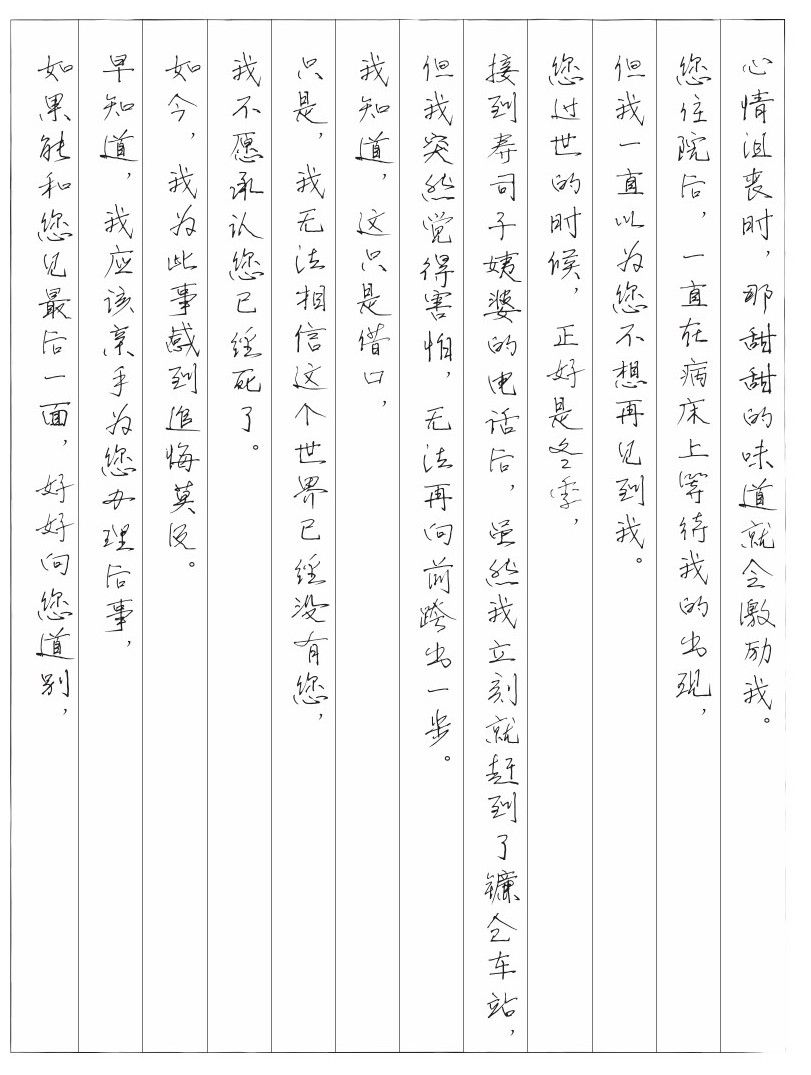 心情沮丧时，那甜甜的味道就会激励我。
您住院后，一直在病床上等待我的出现，
但我一直以为您不想再见到我。
您过世的时候，正好是冬季，
接到寿司子姨婆的电话后，虽然我立刻就赶到了镰仓车站，
但我突然觉得害怕，无法再向前跨出一步。
我知道，这只是借口，
只是，我无法相信这个世界已经没有您，
我不愿承认您已经死了。
如今，我为此事感到追悔莫及。
早知道，我应该亲手为您办理后事，
如果能和您见最后一面，好好向您道别，